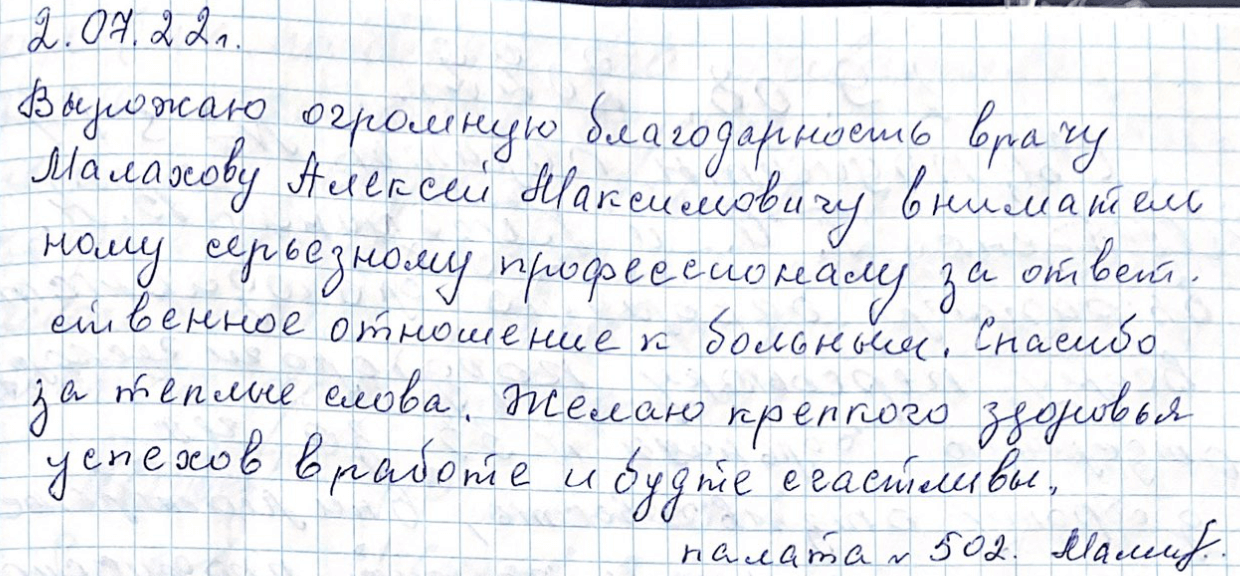 2.07.22г.
Выражаю огромную благодарность врачу
Малахову Алексей Максимовичу вниматель
ному серьезному профессионалу за ответ.
ственное отношение к больным. Спасибо
за теплые слова. Желаю крепкого здоровья
успехов в работе и будте счастливы.
палата № 502.